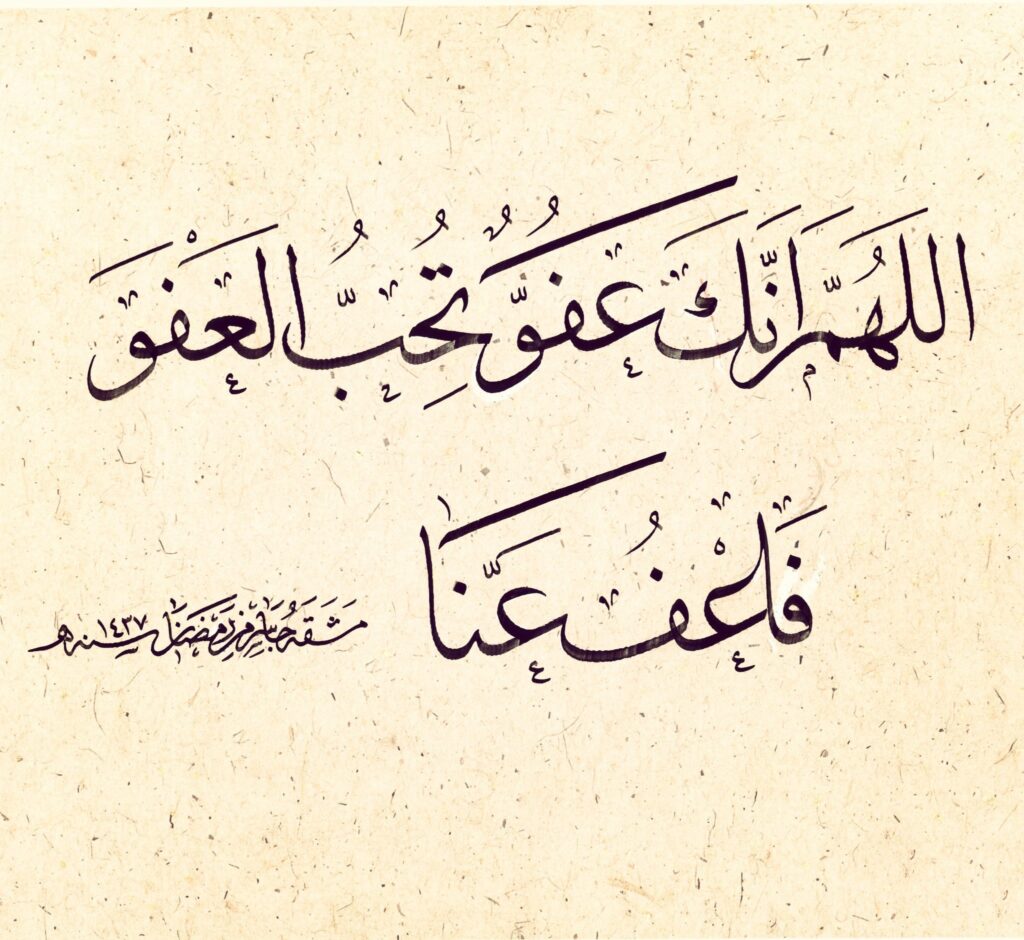 اللهُمَّ اِنَّكَ عَفُوٌّ تُحِبُّ العَفْوَ
فَاعْفُ عَنَّا
مَشَقَهُ رمضان سنه ١٤٣٧ هـ